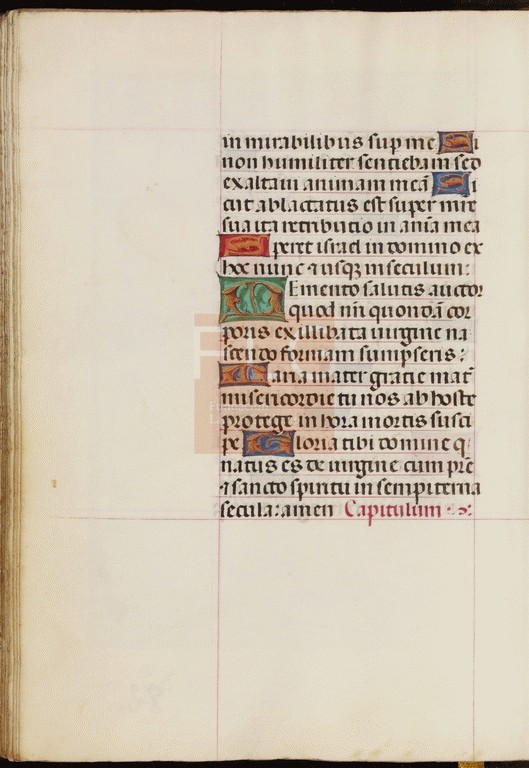 in mirabilibus sup me Si
non humiliter sentiebam sed
exaltaui animam meā Si
cut ablactatus est super mre
sua ita retributio in aīa mea
Speret israel in domino ex
hoc nunc ⁊ usqꝫ in seculum:
MEmento salutis auctor
quod nr̄i quondā cor
poris ex illibata uirgine na
scendo formam sumpseris:
Maria mater gratie mat̄
misericordie tu nos ab hoste
protege in hora mortis susci
pe Gloria tibi domine q
natus es de uirgine cum pre
⁊ sancto spiritu in sempiterna
secula: amen Capitulum